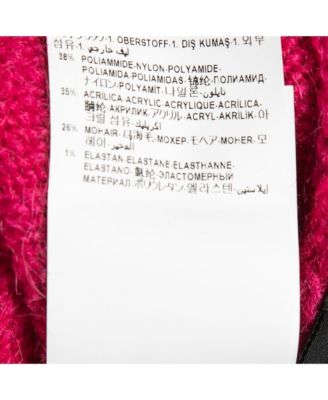 섬유·1. OBERSTOFF·1. DIŞ KUMAŞ·1. 외부
섬유
38% POLIAMMIDE-NYLON-POLYAMIDE-
POLIAMIDA-POLIAMIDAS-ПОЛИАМИД
ナイロン POLYAMIT 나일론
35% ACRILICA-ACRYLIC-ACRYLIQUE-ACRILICA-
АКРИЛИК-アクリル ACRYL-AKRİLİK-아
크릴 섬유 اكريليك
26% MOHAIR-马海毛-МОХЕР-モヘア-MOHER-모
헤어
1% ELASTAN-ELASTANE-ELASTHANNE-
ELASTANO-ЭЛАСТОМЕРНЫЙ
МАТЕРИАЛ ポリウレタン-엘라스텐